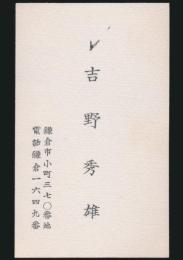 吉野秀雄
鎌倉市小町三七〇番地
電話鎌倉一六四九番